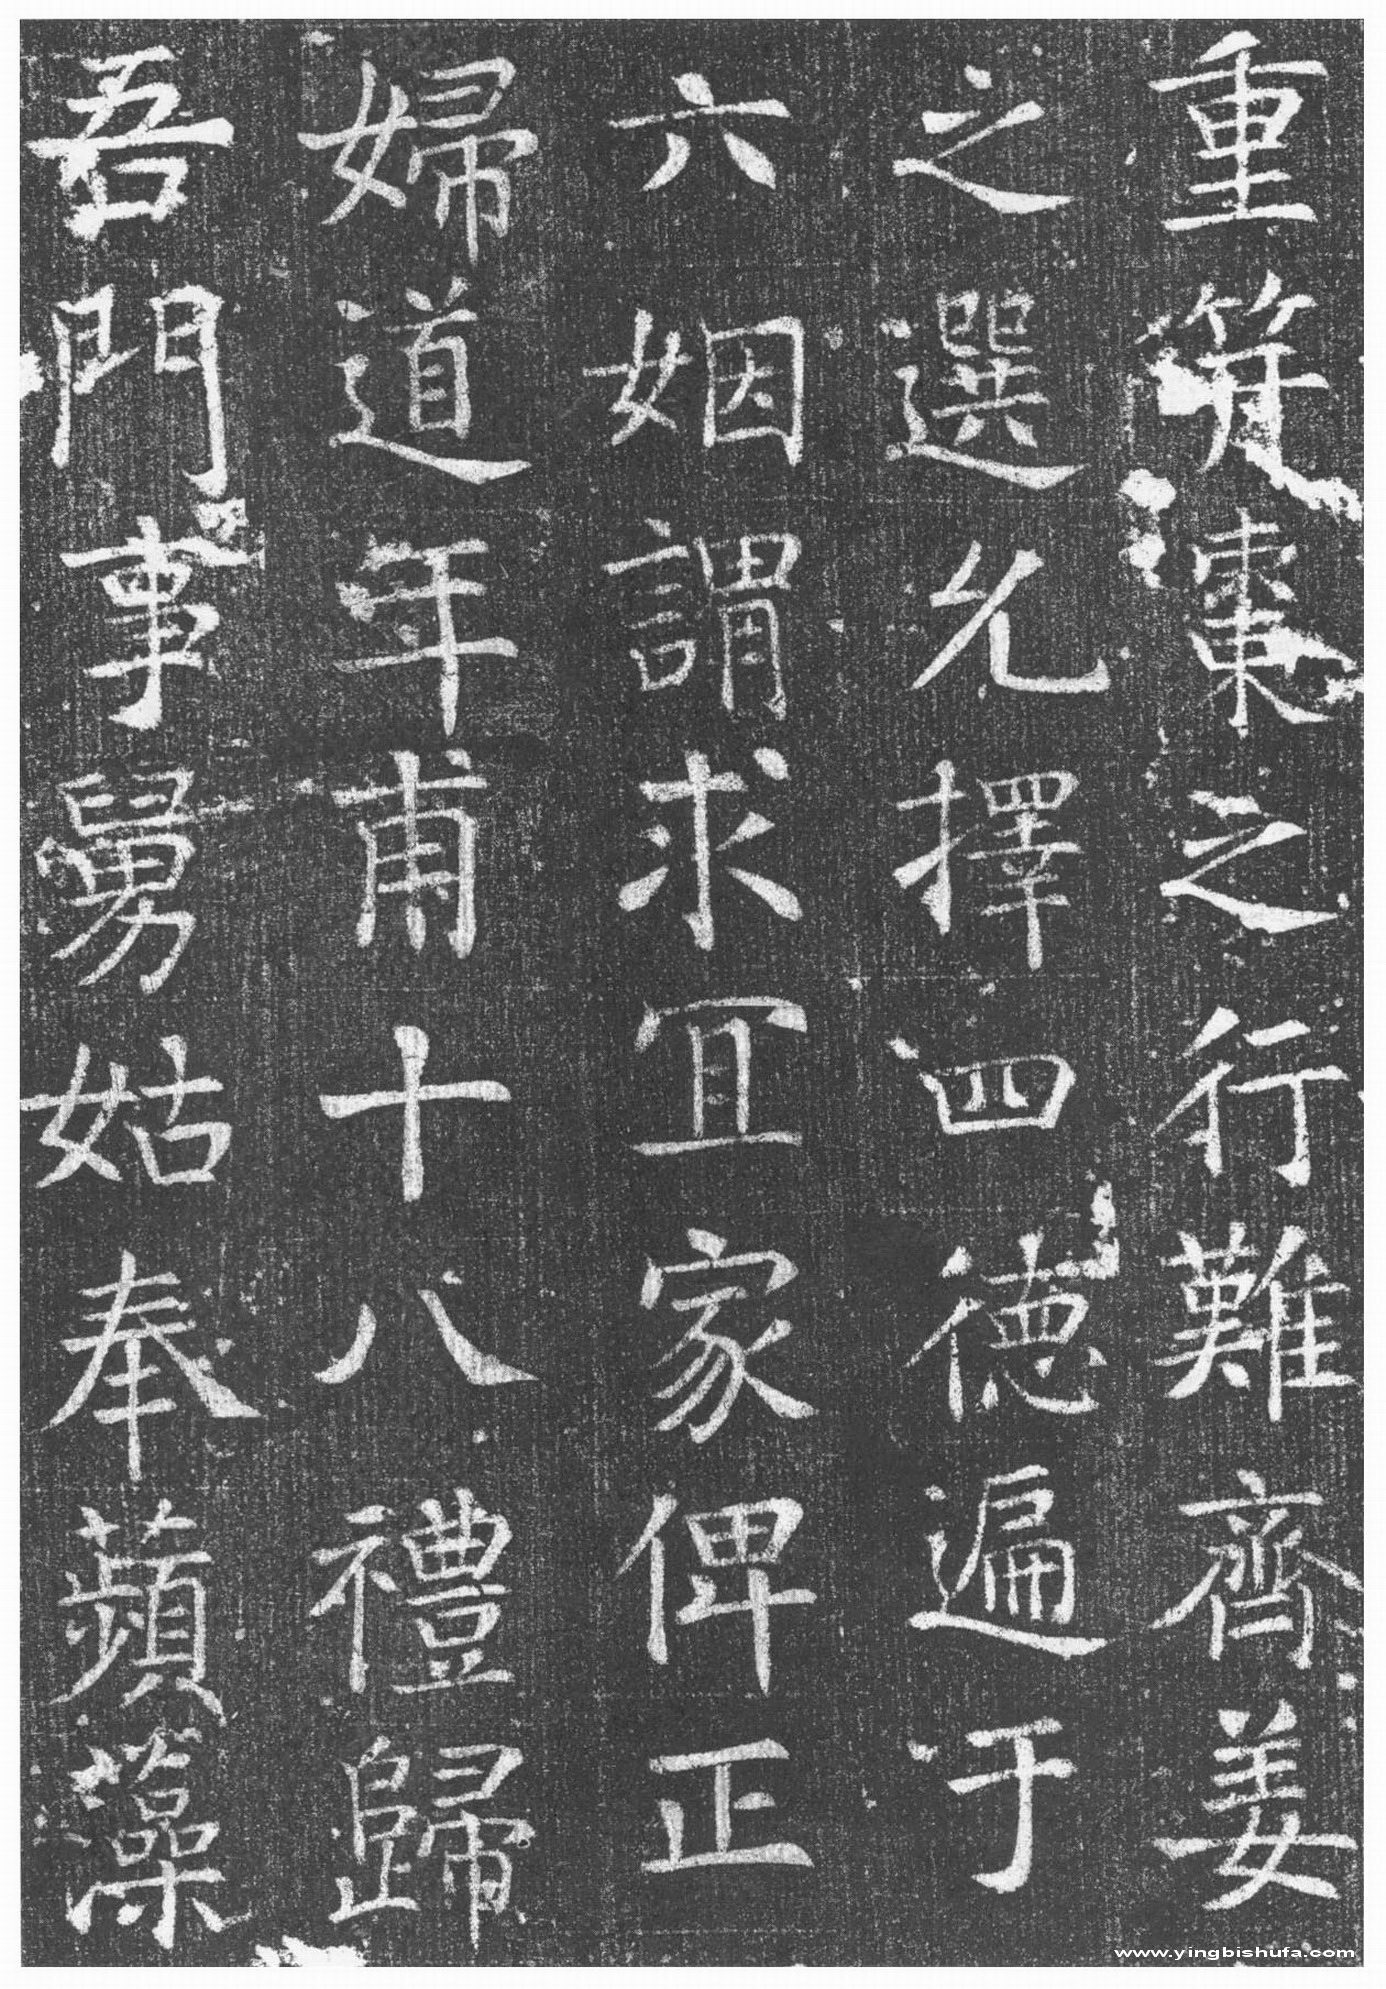 重笄棗之行難齊姜
之選允擇四德遍于
六姻謂求冝家俾正
婦道年甫十八禮歸
吾門事舅姑奉蘋藻
www.yingbishufa.com